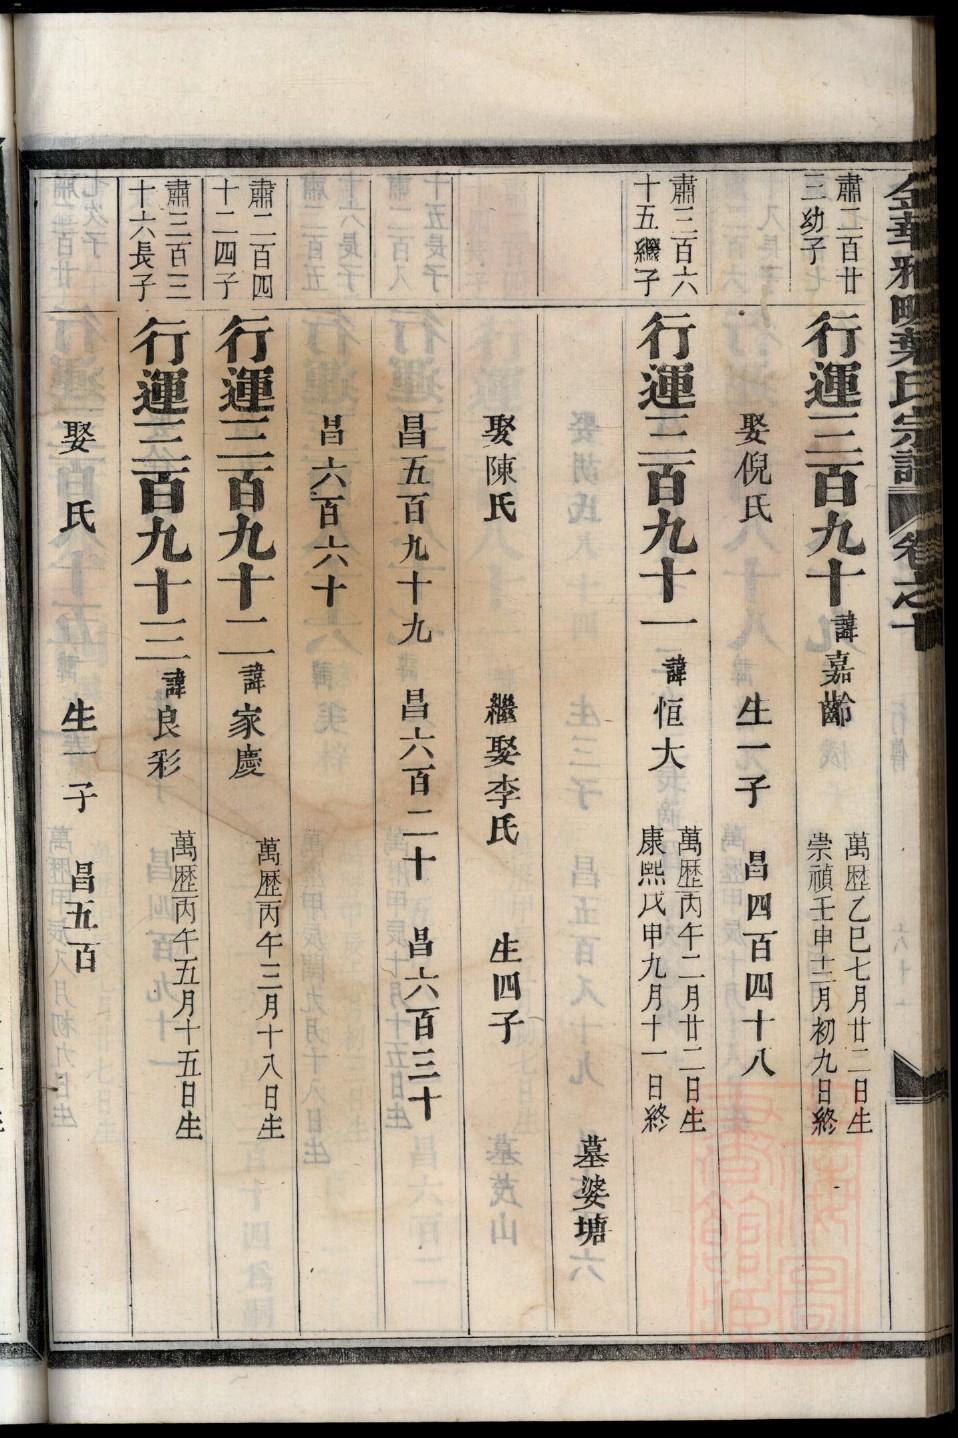 金華雅畈葉氏宗譜 卷之十
肅二百廿
三幼子
行運三百九十 諱嘉齡 萬歷乙巳七月廿二日生
崇禎壬申十二月初九日終
娶倪氏 生一子 昌四百四十八
肅三百六
十五繼子
行運三百九十一 諱恒大 萬歷丙午二月廿二日生
康熙戊申九月十一日終
墓婆塘
娶陳氏 繼娶李氏 生四子
昌五百九十九 昌六百二十 昌六百三十
昌六百六十
肅二百四
十二四子
行運三百九十二 諱家慶 萬歷丙午三月十八日生
肅三百三
十六長子
行運三百九十三 諱良彩 萬歷丙午五月十五日生
娶 氏 生一子 昌五百